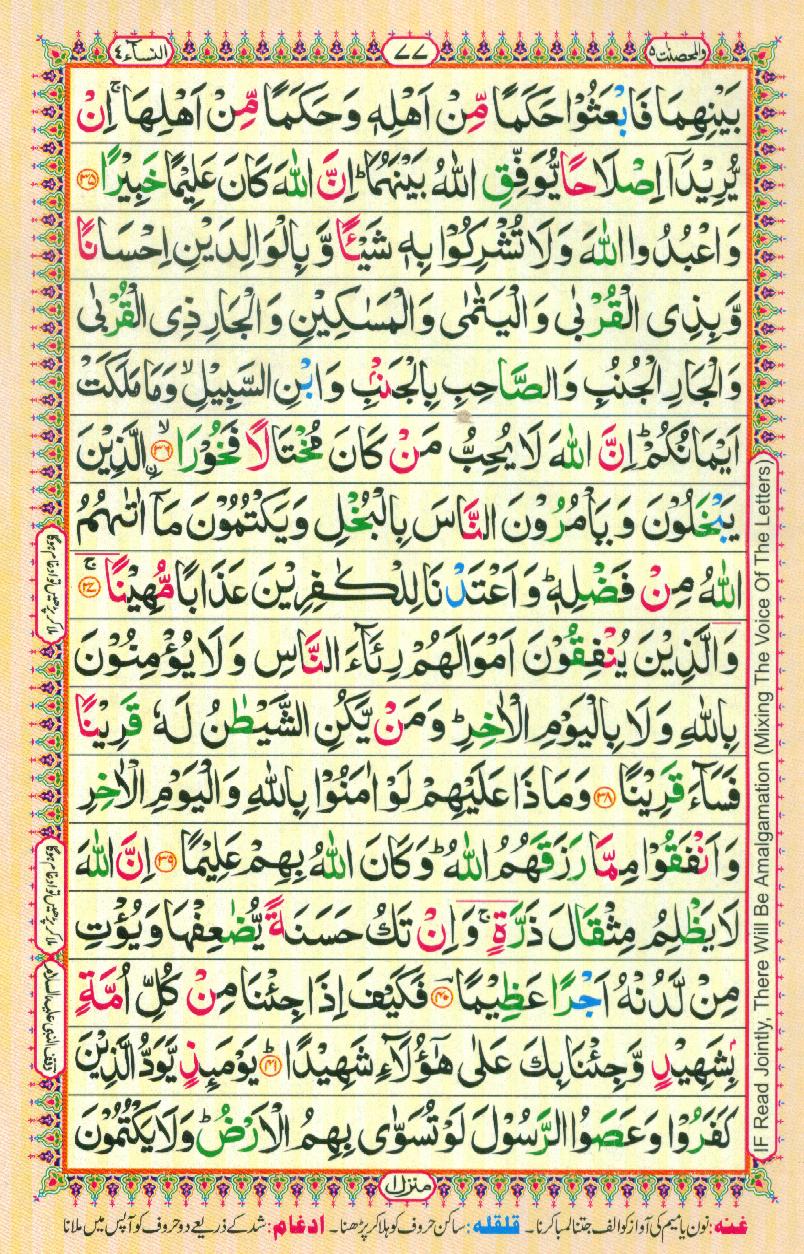 والمحصنت ٥
٧٧
النسآء ٤
بَيْنِهِمَا فَابْعَثُوْا حَكَمًا مِّنْ اَهْلِهٖ وَحَكَمًا مِّنْ اَهْلِهَا ۚ اِنْ
يُّرِيْدَاۤ اِصْلَاحًا يُّوَفِّقِ اللّٰهُ بَيْنَهُمَا ؕ اِنَّ اللّٰهَ كَانَ عَلِيْمًا خَبِيْرًا ﴿۳۵﴾
وَاعْبُدُوا اللّٰهَ وَلَا تُشْرِكُوْا بِهٖ شَيْـًٔا وَّ بِالْوَالِدَيْنِ اِحْسَانًا
وَّبِذِى الْقُرْبٰى وَالْيَتٰمٰى وَالْمَسٰكِيْنِ وَالْجَارِ ذِى الْقُرْبٰى
وَالْجَارِ الْجُنُبِ وَالصَّاحِبِ بِالْجَنْۢبِ وَابْنِ السَّبِيْلِ ۙ وَمَا مَلَكَتْ
اَيْمَانُكُمْ ؕ اِنَّ اللّٰهَ لَا يُحِبُّ مَنْ كَانَ مُخْتَالًا فَخُوْرَا ﴿۳۶﴾ ۙ اۨلَّذِيْنَ
يَبْخَلُوْنَ وَيَاْمُرُوْنَ النَّاسَ بِالْبُخْلِ وَيَكْتُمُوْنَ مَاۤ اٰتٰٮهُمُ
اللّٰهُ مِنْ فَضْلِهٖ ؕ وَاَعْتَدْنَا لِلْكٰفِرِيْنَ عَذَابًا مُّهِيْنًا ۚ ﴿۳۷﴾
وَالَّذِيْنَ يُنْفِقُوْنَ اَمْوَالَهُمْ رِئَآءَ النَّاسِ وَلَا يُؤْمِنُوْنَ
بِاللّٰهِ وَلَا بِالْيَوْمِ الْاٰخِرِ ؕ وَمَنْ يَّكُنِ الشَّيْطٰنُ لَهٗ قَرِيْنًا
فَسَآءَ قَرِيْنًا ﴿۳۸﴾ وَمَاذَا عَلَيْهِمْ لَوْ اٰمَنُوْا بِاللّٰهِ وَالْيَوْمِ الْاٰخِرِ
وَاَنْفَقُوْا مِمَّا رَزَقَهُمُ اللّٰهُ ؕ وَكَانَ اللّٰهُ بِهِمْ عَلِيْمًا ﴿۳۹﴾ اِنَّ اللّٰهَ
لَا يَظْلِمُ مِثْقَالَ ذَرَّةٍ ۚ وَاِنْ تَكُ حَسَنَةً يُّضٰعِفْهَا وَيُؤْتِ
مِنْ لَّدُنْهُ اَجْرًا عَظِيْمًا ﴿۴۰﴾ فَكَيْفَ اِذَا جِئْنَا مِنْ كُلِّ اُمَّةٍۭ
بِشَهِيْدٍ وَّجِئْنَا بِكَ عَلٰى هٰٓؤُلَآءِ شَهِيْدًا ﴿۴۱﴾ؕ يَوْمَئِذٍ يَّوَدُّ الَّذِيْنَ
كَفَرُوْا وَعَصَوُا الرَّسُوْلَ لَوْ تُسَوّٰى بِهِمُ الْاَرْضُ ؕ وَلَا يَكْتُمُوْنَ
ملا کر پڑھیں تو ادغام ہوگا
ملا کر پڑھیں تو ادغام ہوگا
وقف النبی علیہ السلام
IF Read Jointly, There Will Be Amalgamation (Mixing The Voice Of The Letters)
منزل ١
غنہ: نون یا میم کی آواز کو الف جتنا لمبا کرنا۔ قلقلہ: ساکن حروف کو ہلا کر پڑھنا۔ ادغام: شد کے ذریعے دو حروف کو آپس میں ملانا